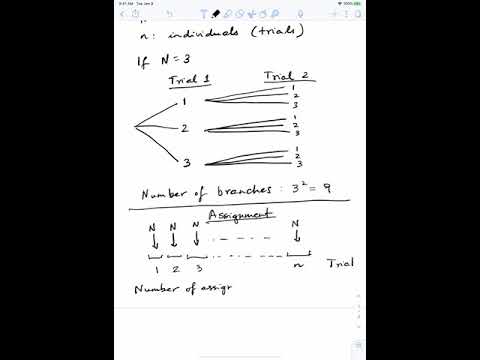 9:41 AM Tue Jan 3
n: individuals (trials)
If N = 3
Trial 1 Trial 2
1 1 2 3
2 1 2 3
3 1 2 3
Number of branches: 3² = 9
Assignment
N N N N
1 2 3 n Trial
Number of assign